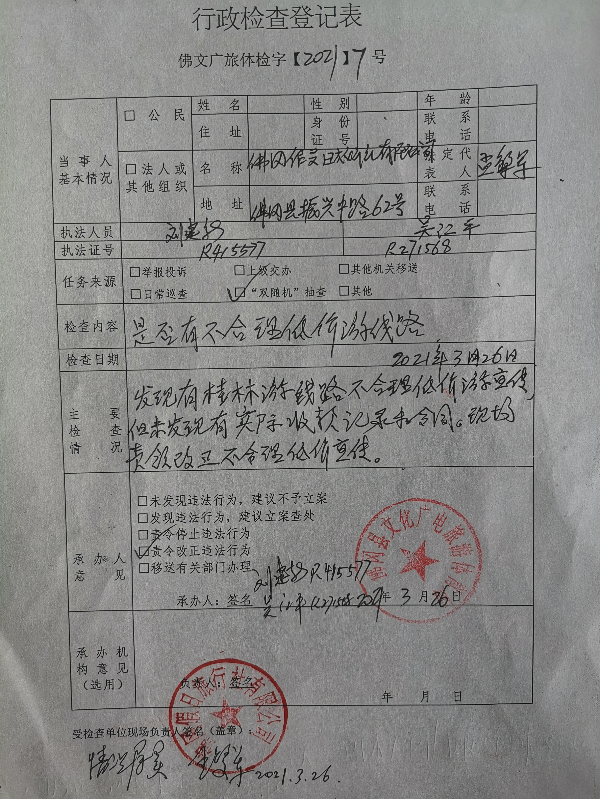 行政检查登记表
佛文广旅体检字【2021】7号
当事人
基本情况
□公民
姓名
性别
年龄
住址
身份
证号
联系
电话
□法人或
其他组织
名称
佛冈
假日旅行社有限公司
法定代
表人
地址
佛冈县振兴中路62号
联系
电话
执法人员
执法证号
R415577
R271568
任务来源
□举报投诉
□上级交办
□其他机关移送
□日常巡查
□“双随机”抽查
□其他
检查内容
是否有不合理低价游线路
检查日期
2021年3月26日
主要
检查
情况
发现有桂林游线路不合理低价游宣传,
但未发现有实际收款记录和合同。现场
责领改正不合理低价宣传。
承办人
意见
□未发现违法行为,建议不予立案
□发现违法行为,建议立案查处
□责令停止违法行为
□责令改正违法行为
□移送有关部门办理
R415577
承办人:签名
2021年3月26日
佛冈县文化广电旅游体育局
承办机
构意见
(选用)
负责人:签名
年 月 日
假日旅行社有限公司
受检查单位现场负责人签名(盖章):
情况属实
2021.3.26.